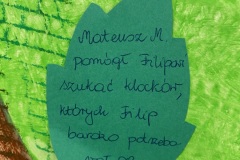 Mateusz M.
pomógł Filipowi
szukać klocków,
których Filip
bardzo potrzebo
wał